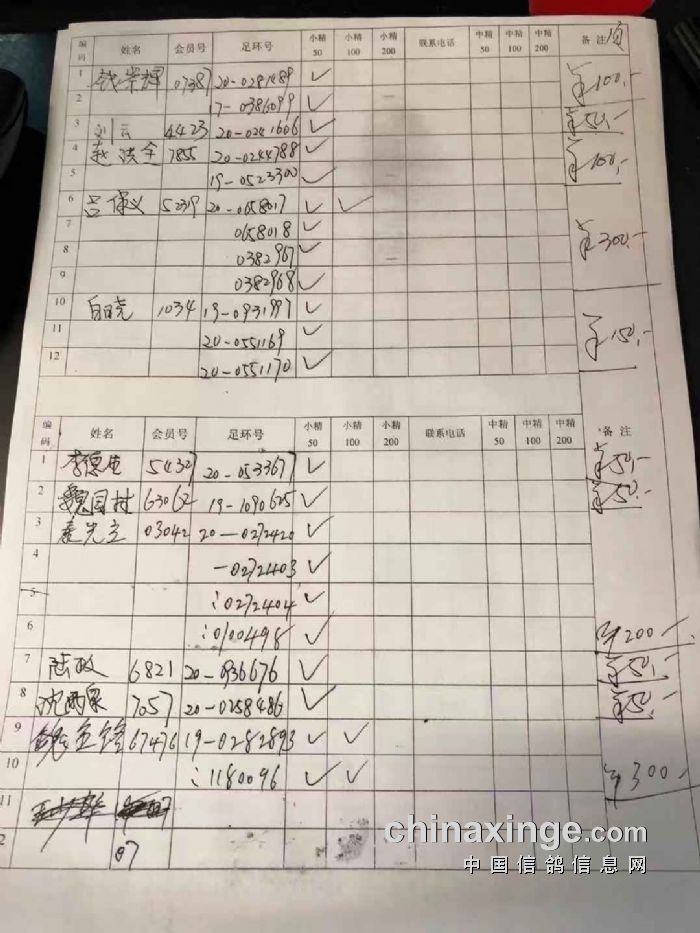 编码 姓名 会员号 足环号 小精50 小精100 小精200 联系电话 中精50 中精100 中精200 备注
1 钱崇辉 07387 20-0281489 ✓ ¥100,-
2 17-0386099 ✓
3 刘云 4423 20-0241606 ✓ ¥50,-
4 赵洪全 7855 20-0244788 ✓ ¥100,-
5 19-0523300 ✓
6 吕保义 5239 20-0658017 ✓ ✓ ¥300,-
7 0658018 ✓
8 0382967 ✓
9 0382968 ✓
10 白晓 1034 19-0931997 ✓ ¥150,-
11 20-0551169 ✓
12 20-0551170 ✓
编码 姓名 会员号 足环号 小精50 小精100 小精200 联系电话 中精50 中精100 中精200 备注
1 李德 5432 20-0533677 ✓ ¥50,-
2 魏国村 63062 19-1090625 ✓ ¥50,-
3 03042 20-0272420 ✓
4 -0272403 ✓
5 :0272404 ✓
6 :0100498 ✓ ¥200-
7 陆政 6821 20-0936676 ✓ ¥50,-
8 沈 7057 20-0258486 ✓ ¥50,-
9 67476 19-0282893 ✓ ✓
10 :1180096 ✓ ✓ ¥300,-
11
2 07
chinaxinge.com
中国信鸽信息网